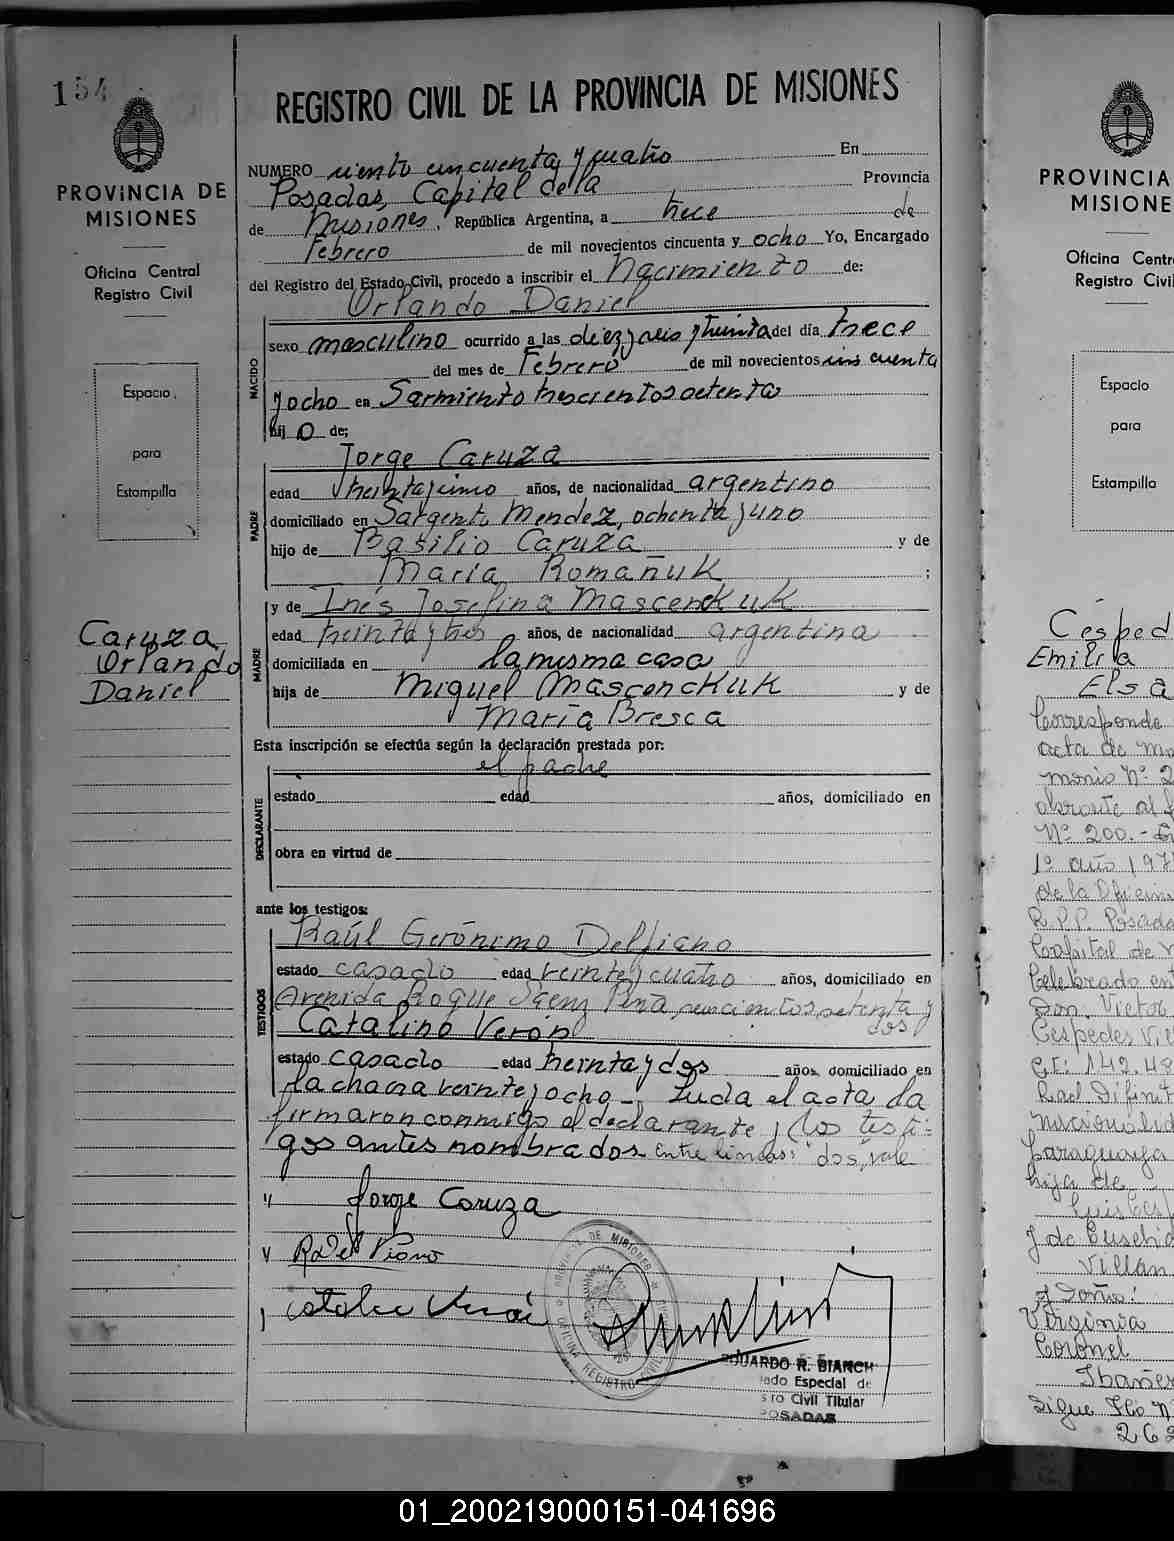 154
PROVINCIA DE
MISIONES
Oficina Central
Registro Civil
Espacio
para
Estampilla
Caruza
Orlando
Daniel
REGISTRO CIVIL DE LA PROVINCIA DE MISIONES
NUMERO ciento cincuenta y cuatro En
Posadas, Capital de la Provincia
de Misiones, República Argentina, a trece de
Febrero de mil novecientos cincuenta y ocho Yo, Encargado
del Registro del Estado Civil, procedo a inscribir el Nacimiento de:
Orlando Daniel
NACIDO
sexo masculino ocurrido a las diez y seis y treinta del día trece
del mes de Febrero de mil novecientos cincuenta
y ocho en Sarmiento trescientos setenta
hijo de;
Jorge Caruza
PADRE
edad treinta y uno años, de nacionalidad argentino
domiciliado en Sargento Mendez, ochenta y uno
hijo de Basilio Caruza y de
María Romañuk ;
y de Inés Josefina Mascenckuk
MADRE
edad treinta y tres años, de nacionalidad argentina
domiciliada en la misma casa
hija de Miguel Mascenckuk y de
María Bresca
Esta inscripción se efectúa según la declaración prestada por:
el padre
DECLARANTE
estado edad años, domiciliado en
obra en virtud de
ante los testigos:
Raúl Gerónimo Delfiano
TESTIGOS
estado casado edad veinte y cuatro años, domiciliado en
Avenida Roque Sáenz Peña, setenta y
dos
Catalino Verón
estado casado edad treinta y dos años, domiciliado en
la chacra veinte y ocho - Leída el acta la
firmaron conmigo el declarante y los testi-
gos antes nombrados. Entre lineas: "dos", vale
Jorge Caruza
PROVINCIA DE MISIONES
OFICINA REGISTRO CIVIL
EDUARDO R. BIANCHI
Especial de
Civil Titular
POSADAS
PROVINCIA
MISIONE
Oficina Centr
Registro Civil
Espacio
para
Estampilla
Césped
Emilia
Elsa
Corresponde
acta de ma
monio Nº 2
Nº 200.-
1º año 197
de la Oficin
R.P.P. Posada
Capital de
Celebrado en
Don. Victor
Céspedes Vil
C.I: 142.48
Rad Difinit
nacionalid
Paraguaya
hija de
Luis Cesp
y de Eusebia
Villán
y Doña:
Virginia
Coronel
Ibañez
Sigue Flio Nº
262
01_200219000151-041696